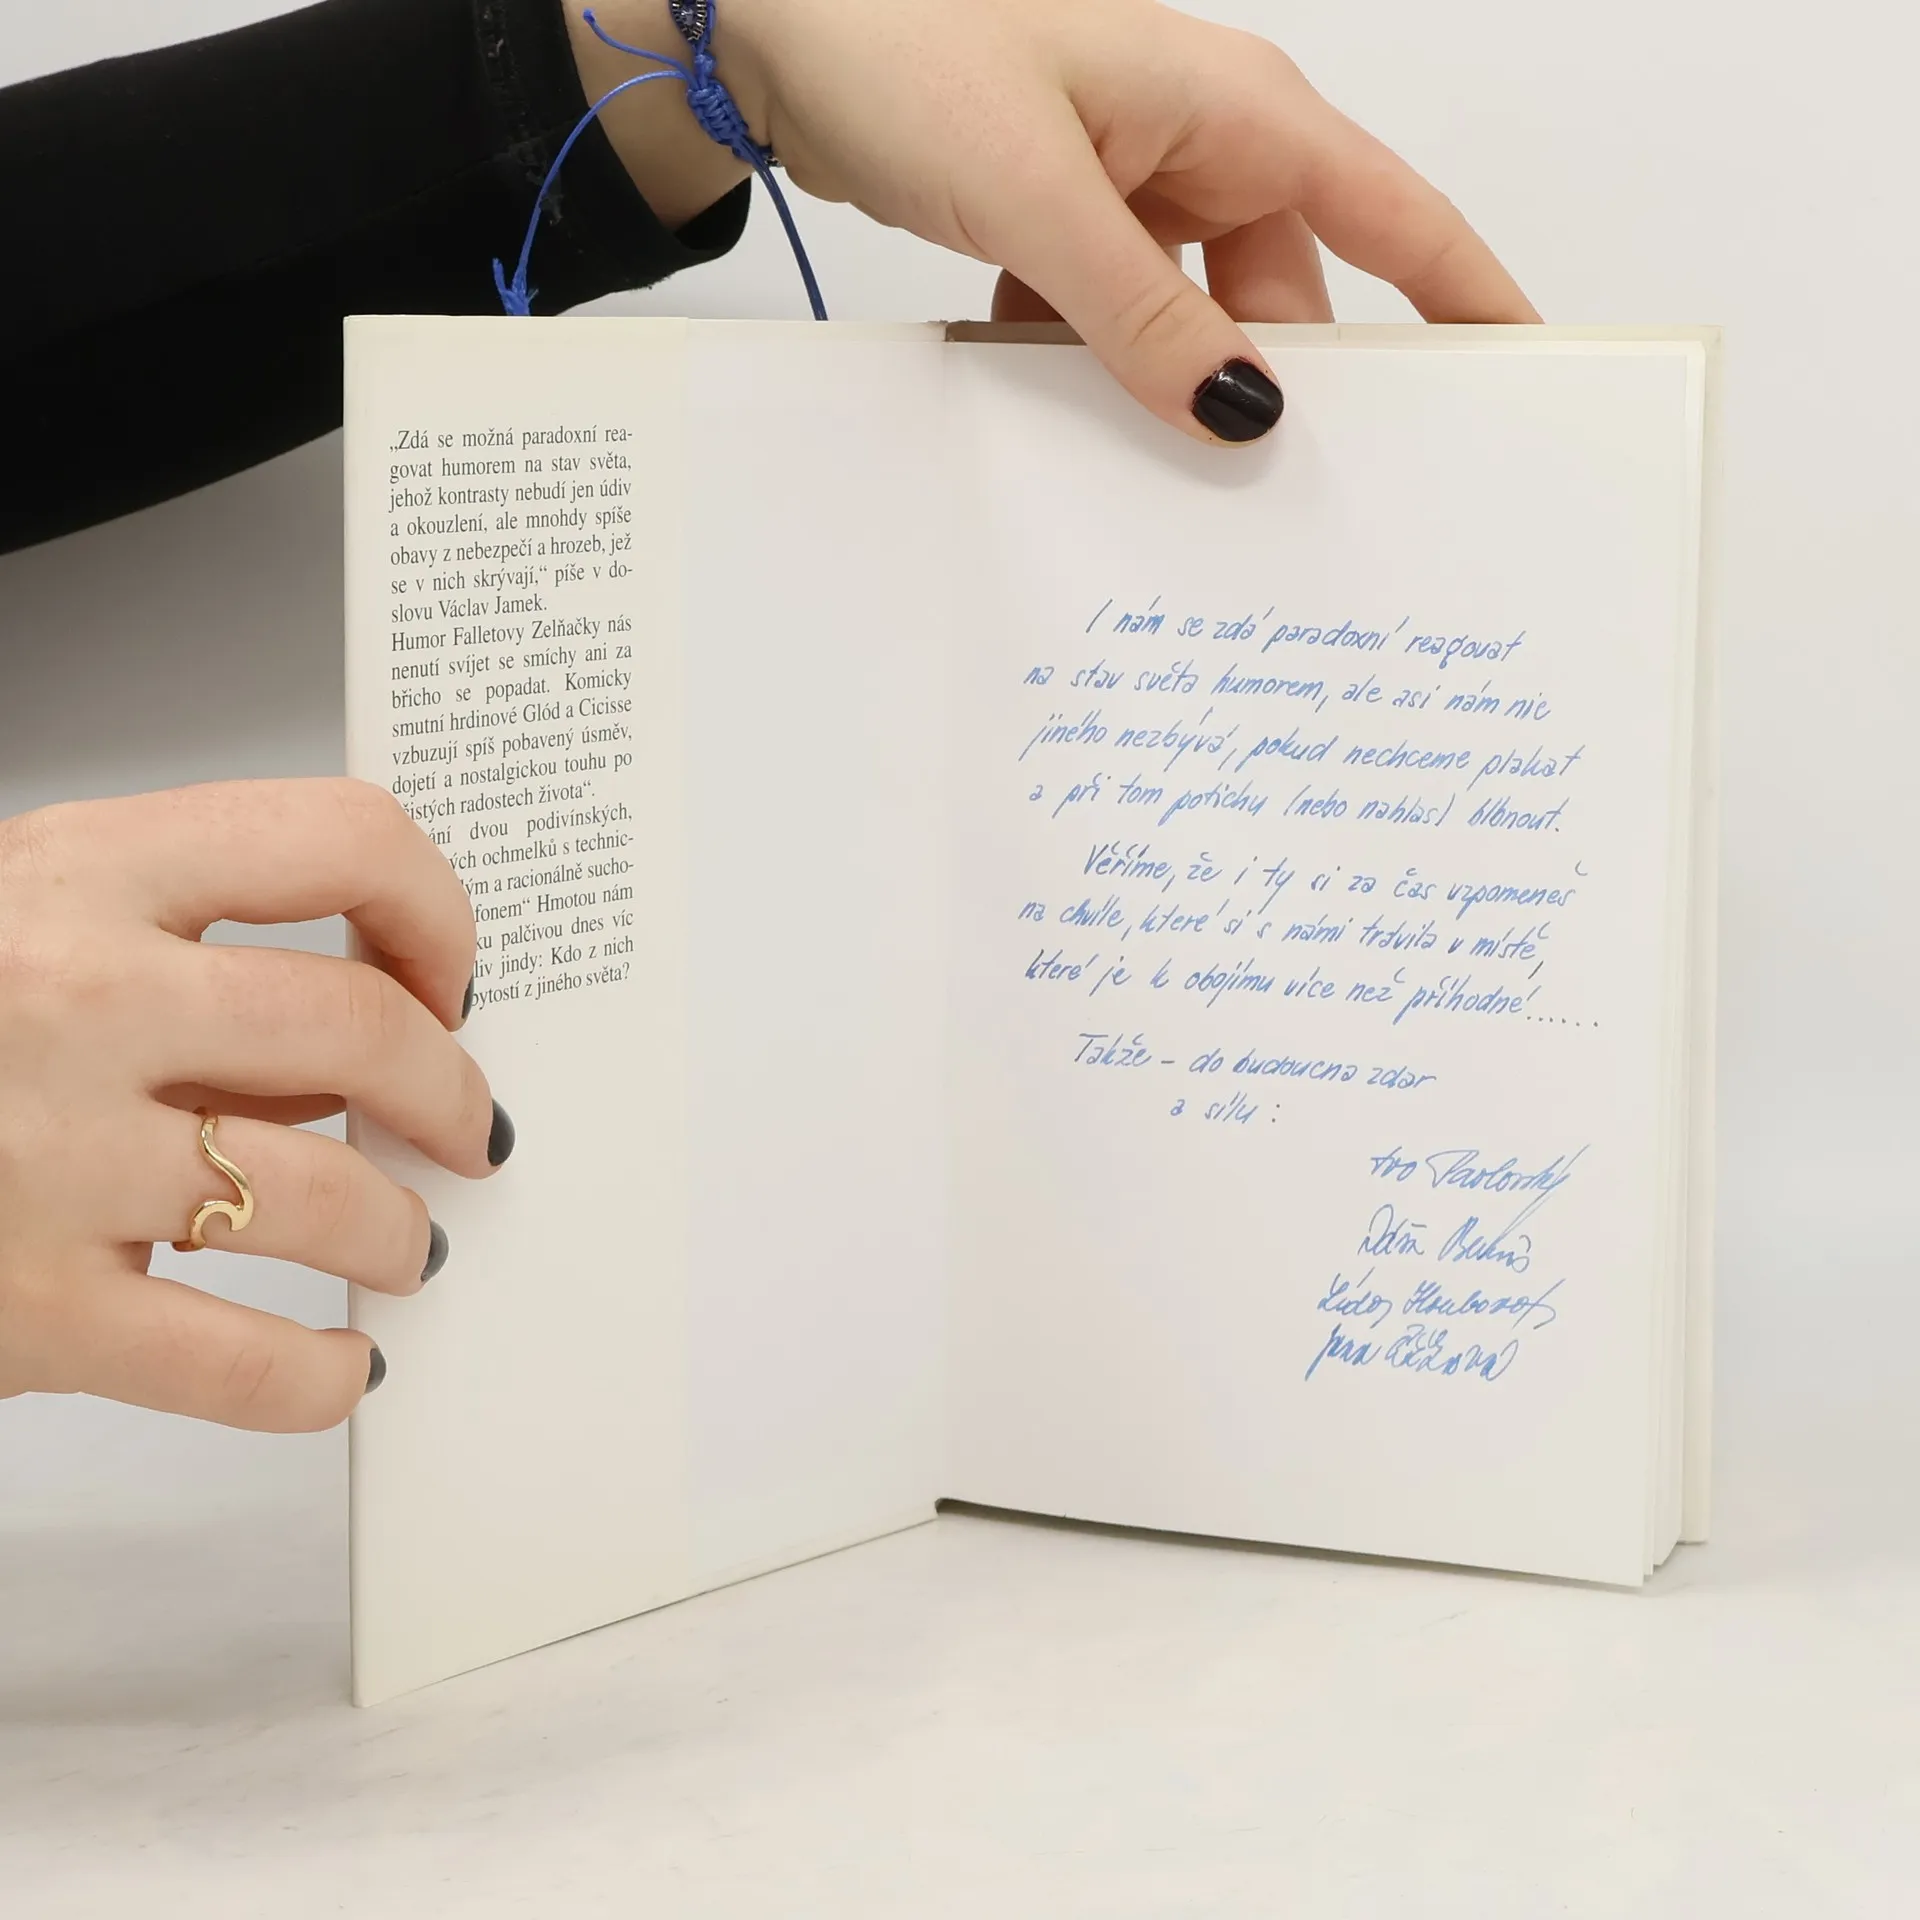 „Zdá se možná paradoxní rea-
govat humorem na stav světa,
jehož kontrasty nebudí jen údiv
a okouzlení, ale mnohdy spíše
obavy z nebezpečí a hrozeb, jež
se v nich skrývají,“ píše v do-
slovu Václav Jamek.
Humor Falletovy Zelňačky nás
nenutí svíjet se smíchy ani za
břicho se popadat. Komicky
smutní hrdinové Glód a Cicisse
vzbuzují spíš pobavený úsměv,
dojetí a nostalgickou touhu po
radostech života“.
dvou podivínských,
ochmelků s technic-
a racionálně sucho-
Hmotou nám
palčivou dnes víc
jindy: Kdo z nich
z jiného světa?
I nám se zdá paradoxní reagovat
na stav světa humorem, ale asi nám nic
jiného nezbývá, pokud nechceme plakat
a při tom potichu (nebo nahlas) blbnout.
Věříme, že i ty si za čas vzpomeneš
na chvíle, které si s námi trávila v místě,
které je k obojímu více než příhodné!......
Takže – do budoucna zdar
a sílu :
Ivo Pavlovský
Jana